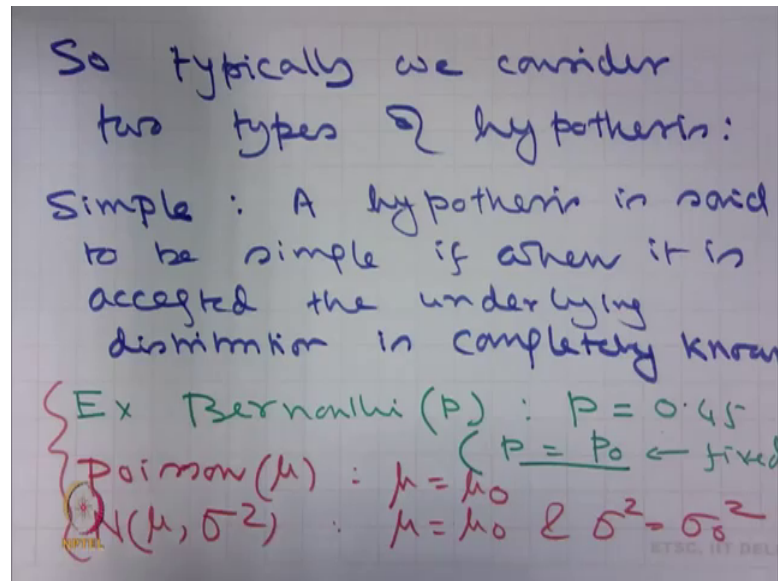 So typically we consider
two types of hypothesis:
Simple : A hypothesis is said
to be simple if when it is
accepted the underlying
distribution is completely known
Ex Bernoulli (p) : p = 0.45
( p = p0 ← fixed
Poisson (μ) : μ = μ0
N(μ, σ²) : μ = μ0 & σ² = σ0²
NPTEL
ETSC, IIT DEL